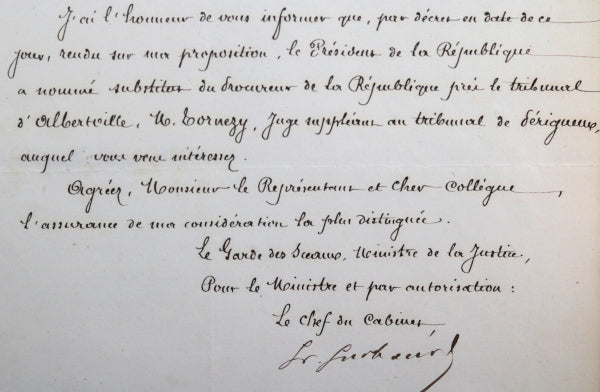 J'ai l'honneur de vous informer que, par décret en date de ce
jour, rendu sur ma proposition, le Président de la République
a nommé substitut du Procureur de la République près le tribunal
d'Albertville, M. Tornezy, Juge suppléant au tribunal de Périgueux,
auquel vous vous intéressez.
Agréez, Monsieur le Représentant et cher Collègue,
l'assurance de ma considération la plus distinguée.
Le Garde des Sceaux, Ministre de la Justice,
Pour le Ministre et par autorisation :
Le Chef du Cabinet,